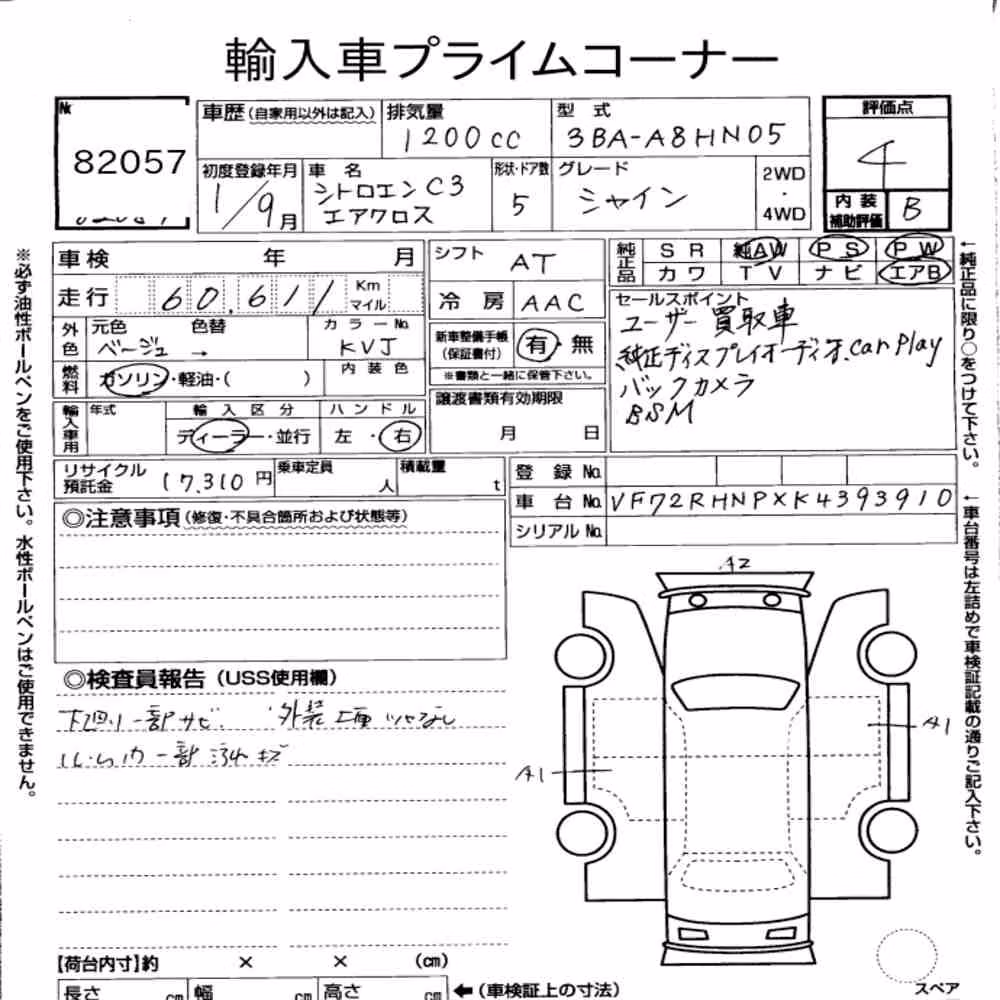 輸入車プライムコーナー
№ 82057
車歴(自家用以外は記入) 排気量 1200cc 型式 3BA-A8HN05 評価点 4
初度登録年月 1/9月 車名 シトロエンC3 エアクロス 形状・ドア数 5 グレード シャイン 2WD・4WD 内装補助評価 B
車検 年 月
シフト AT
純正品 SR 純AW PS PW
カワ TV ナビ エアB
走行 60,611 Km マイル
冷房 AAC
外色 元色 ベージュ 色替 → カラーNo. KVJ
内装色
燃料 ガソリン・軽油・( )
新車整備手帳(保証書付) 有・無
※書類と一緒に保管下さい。
セールスポイント
ユーザー買取車
純正ディスプレイオーディオ.carplay
バックカメラ
BSM
輸入車用 年式 輸入区分 ディーラー・並行 ハンドル 左・右
譲渡書類有効期限 月 日
リサイクル預託金 17,310円 乗車定員 人 積載量 t
登録No.
車台No. VF72RHNPXK4393910
シリアルNo.
◎注意事項(修復・不具合箇所および状態等)
◎検査員報告(USS使用欄)
下廻り一部サビ. 外装
一部
A2
A1
A1
【荷台内寸】約 × × (cm)
長さ cm 幅 cm 高さ cm ←(車検証上の寸法)
スペア
※必ず油性ボールペンをご使用下さい。水性ボールペンはご使用できません。
←純正品に限り○をつけて下さい。
←車台番号は左詰めで車検証記載の通りご記入下さい。